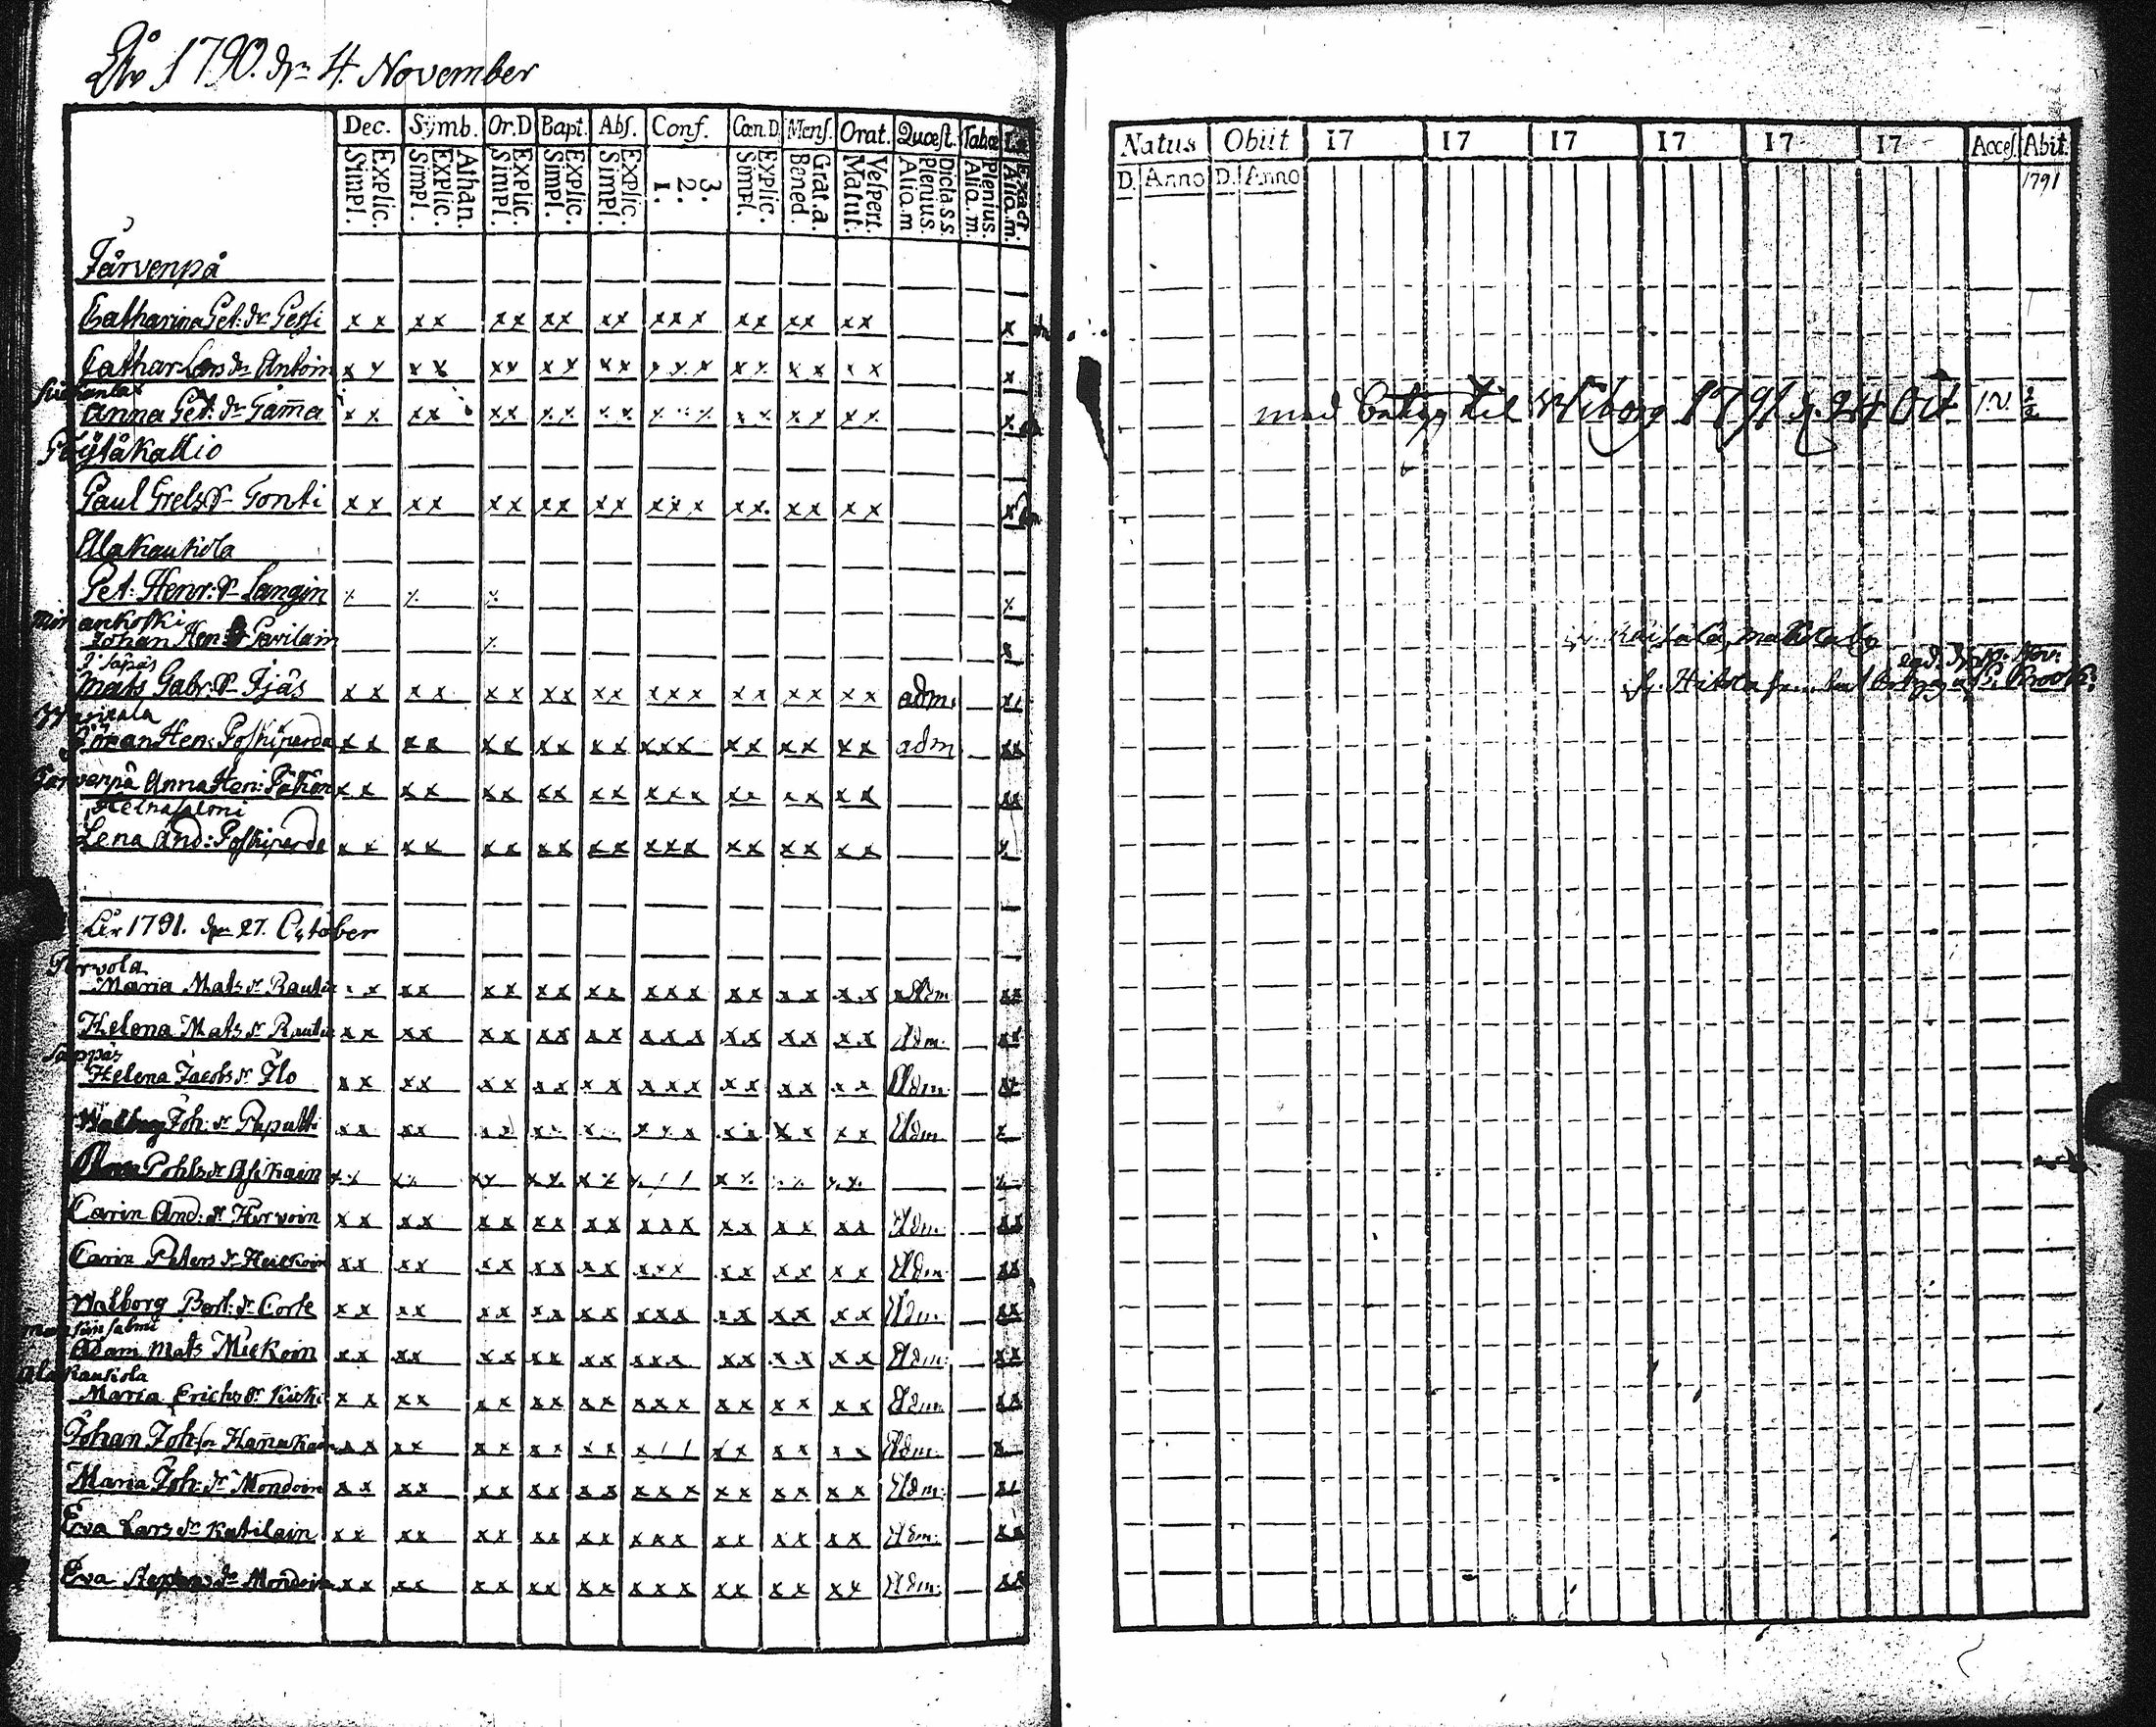 År 1790. dn 4. November
Dec. Symb. Or.D Bapt. Abs. Conf. Cœn.D. Mens. Orat. Quæst. Tabæ
Explic. Simpl. Athan. Explic. Simpl. Explic. Simpl. Explic. Simpl. Explic. Simpl. 3. 2. 1. Explic. Simpl. Grat.a. Bened. Vespert. Matut. Dicta s.s. Plenius. Aliq.m Plenius. Aliq.m. Exact. Aliq.m.
Järvenpä
Catharina Pet: dr Pessi x x x x x x x x x x x x x x x x x x x x
Cathar Lars dr Antoin x x x x x x x x x x x x x x x x x x x x
Anna Pet: dr Jam̄a x x x x x x x x x x x x x x x x x x x x
Pöytäkallio
Paul Grels Sn Tonti x x x x x x x x x x x x x x x x x x x x
Allakaukola
Pet: Henr: Sn Langin x x x x
Johan Hen: Pavilain x x
Mats Gabr: Sn Ijäs x x x x x x x x x x x x x x x x x x x adm. x x
Göran Hen: Poskiparda x x x x x x x x x x x x x x x x x x x adm x x
Järvenpä Anna Hen: x x x x x x x x x x x x x x x x x x x x x
Heinasalmi
Lena And: Poskiparda x x x x x x x x x x x x x x x x x x x x
År 1791. dn 27. October
Torvola
Maria Mats dr Rautia x x x x x x x x x x x x x x x x x x x Adm x x
Helena Mats dr Rautia x x x x x x x x x x x x x x x x x x x Adm. x x
Helena Jacobs dr Ilo x x x x x x x x x x x x x x x x x x x Adm. x x
Walborg Joh: dr Paputti x x x x x x x x x x x x x x x x x x x Adm x
Pohls dr Asikain x x x x x x x x x x x / / x x x x x x x
Carin And: dr Hirvoin x x x x x x x x x x x x x x x x x x x Adm. x x
Carin Peters dr Heickoin x x x x x x x x x x x x x x x x x x x Adm. x x
Walborg Bert: dr Corte x x x x x x x x x x x x x x x x x x x Adm. x x
Mansinsalmi
Adam Mats Mickoin x x x x x x x x x x x x x x x x x x x Adm. x x
Alakaukola
Maria Erichs dr Kiiski x x x x x x x x x x x x x x x x x x x Adm x x
Johan Joh: sn x x x x x x x x x x x / / x x x x x x Adm. x
Maria Joh: dr Mondoin x x x x x x x x x x x x x x x x x x x Adm. x x
Eva Lars dr Katilain x x x x x x x x x x x x x x x x x x x Adm. x x
Eva Staphans dr Mondoin x x x x x x x x x x x x x x x x x x x Adm. x x
Natus Obiit 17 17 17 17 17 17 Acces. Abit.
D. Anno D. Anno 1791
med betyg til Wiborg 1791 d. 24 Oct